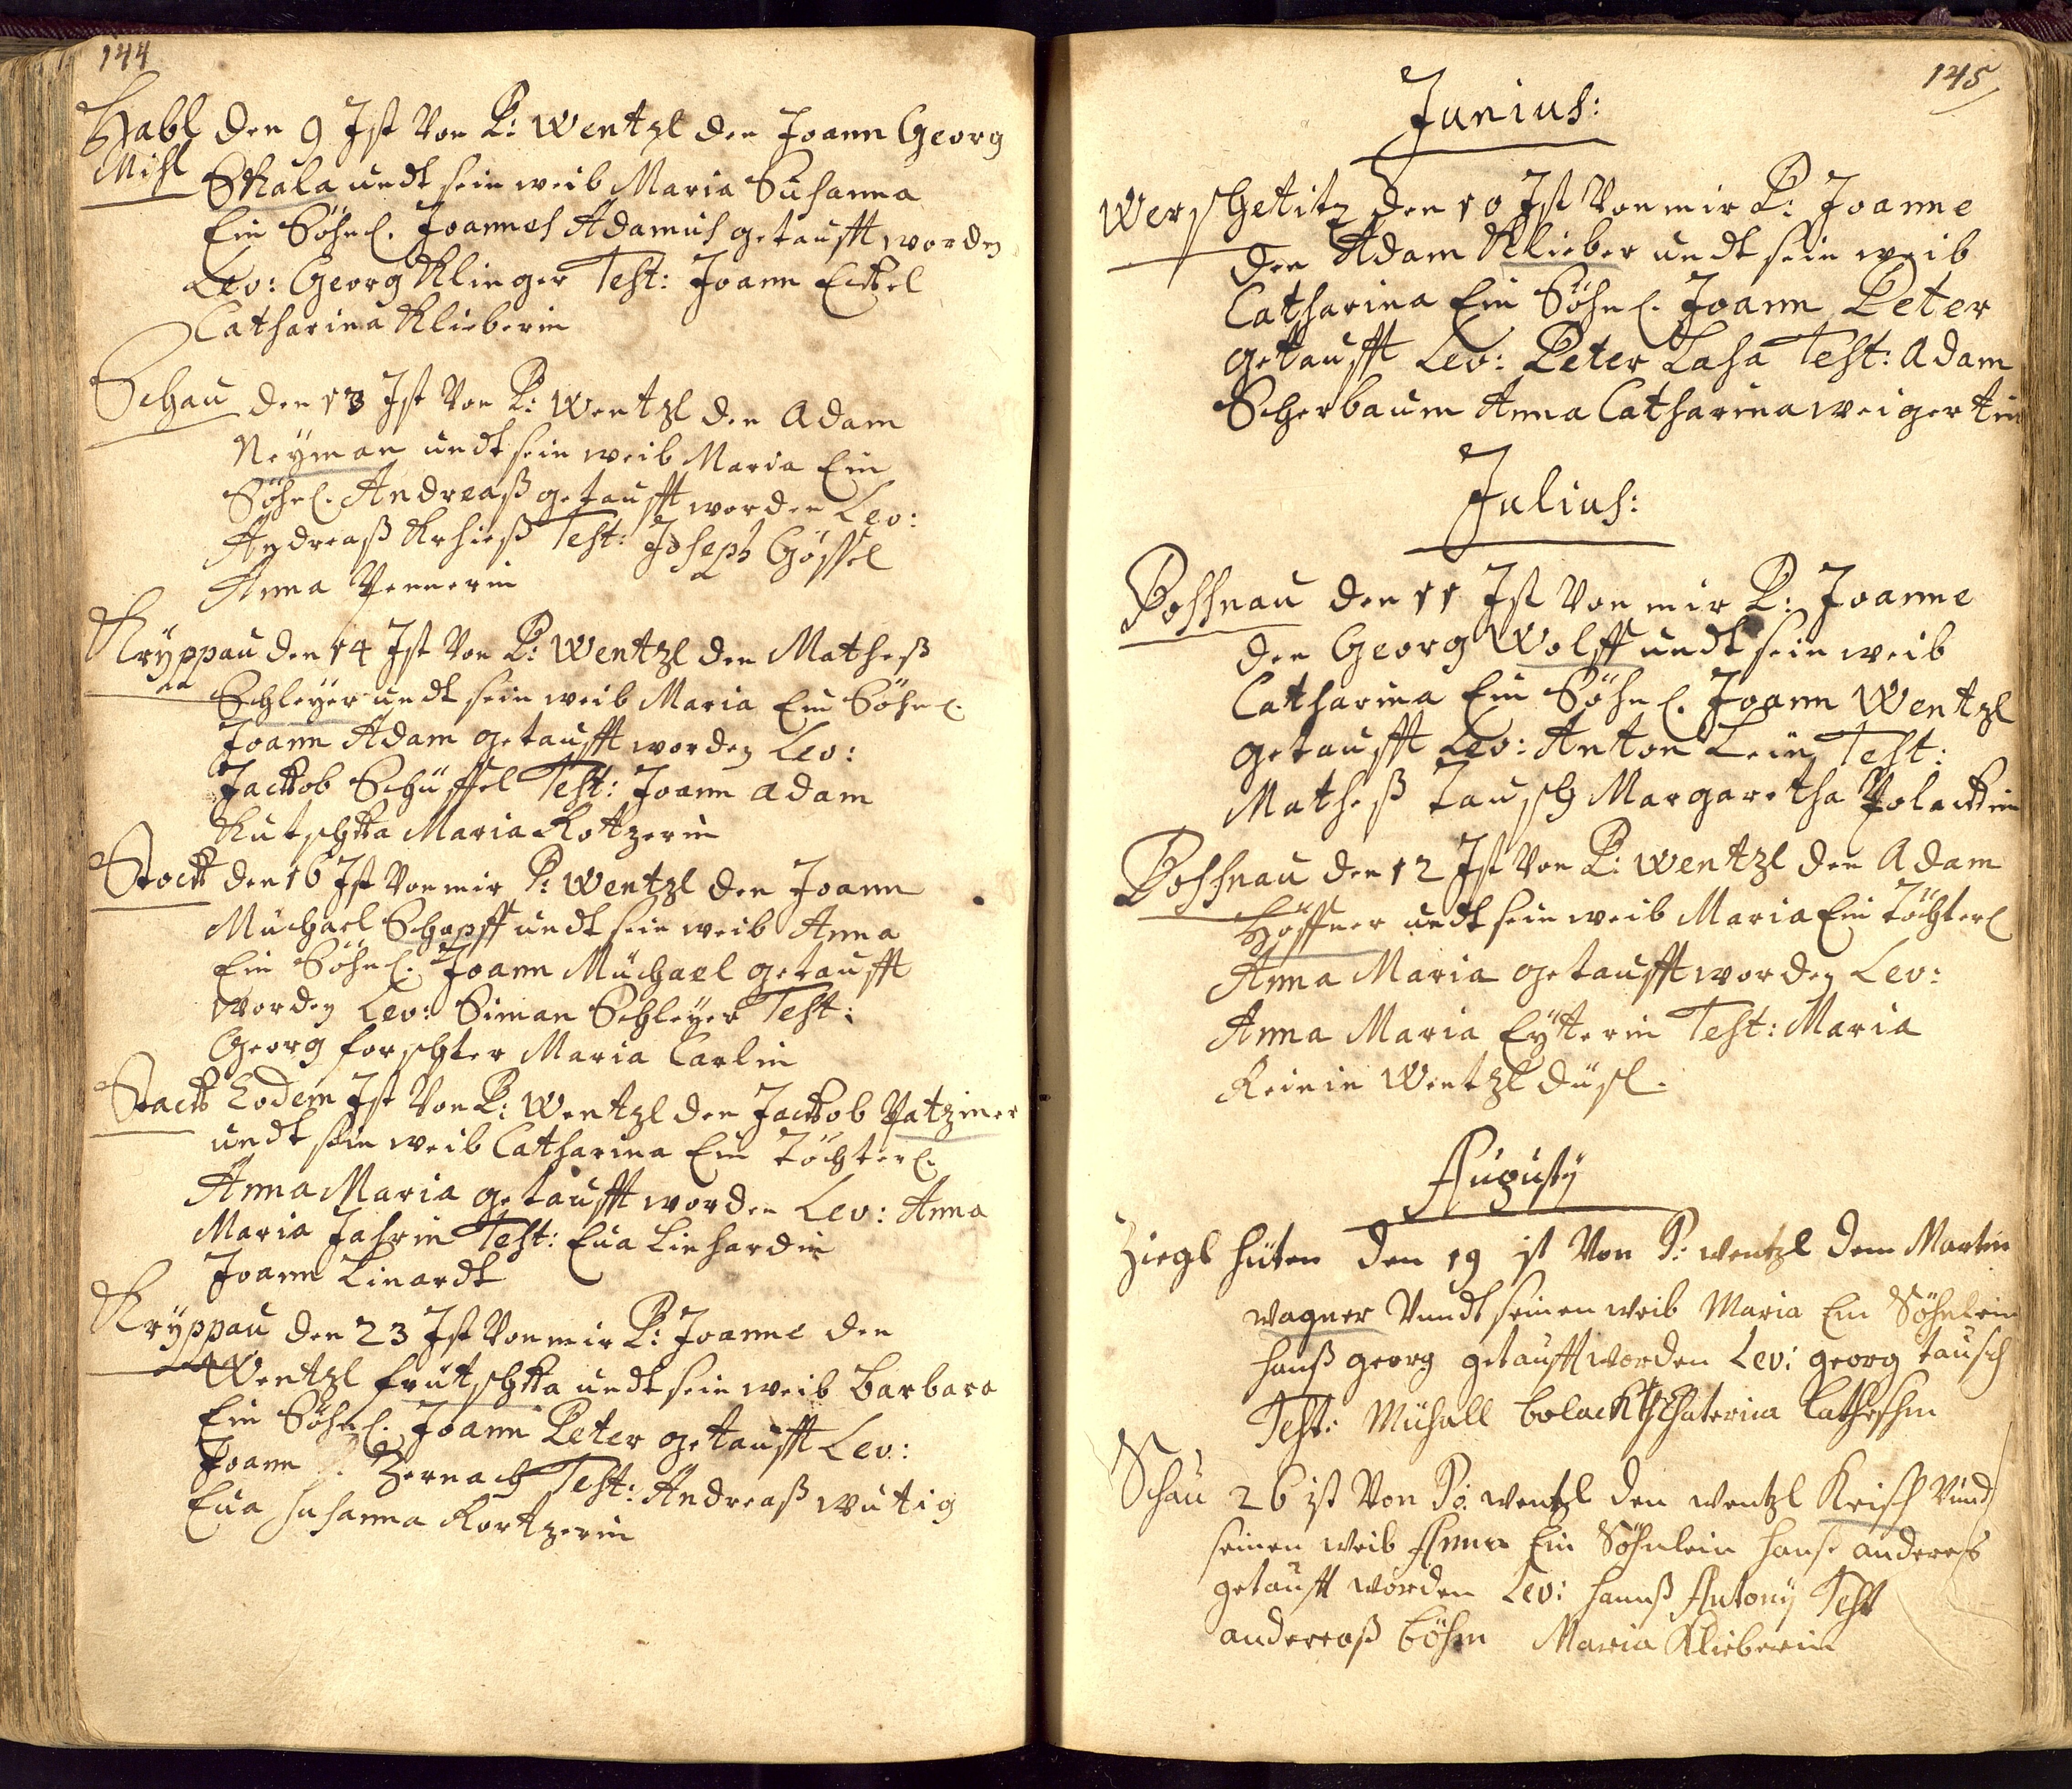 144
Habl den 9 Ist Von P: Wentzl den Joann Georg
Mihl Skala undt sein weib Maria Susanna
Ein Söhnl. Joannes Adamus getaufft worden
Lev: Georg Klinger Test: Joann Eckel
Catharina Klieberin
Schau den 13 Ist Von P: Wentzl den Adam
Neyman undt sein weib Maria Ein
Söhnl. Andreaß getaufft worden Lev:
Andreaß Test: Joseph Gössel
Anna Pennerin
Kryppau den 14 Ist Von P: Wentzl den Matheß
Schleyer undt sein weib Maria Ein Söhnl.
Joann Adam getaufft worden Lev:
Jackob Schüssel Test: Joann Adam
Kutschka Maria Kotzerin
Stock den 16 Ist Von mir P: Wentzl den Joann
Müchael Schopff undt sein weib Anna
Ein Söhnl. Joann Müchael getaufft
worden Lev: Siman Schleyer Test:
Georg forschter Maria Carlin
Stack Eodem Ist Von P: Wentzl den Jackob Patziner
undt sein weib Catharina Ein Töchterl.
Anna Maria getaufft worden Lev: Anna
Maria Test: Eua Linhardin
Joann Linardt
Kryppau den 23 Ist Von mir P: Joanne den
Wentzl frütschka undt sein weib Barbara
Ein Söhnl. Joann Peter getaufft Lev:
Joann Zernach Test: Andreaß Wutig
Eua susanna Kortzerin
145
Junius:
Werschetitz den 10 Ist Von mir P: Joanne
den Adam Klieber undt sein weib
Catharina Ein Söhnl. Joann Peter
getaufft Lev: Peter Lasa Test: Adam
Scherbaum Anna Catharina weigertin
Julius:
Posnau den 11 Ist Von mir P: Joanne
den Georg Wolff undt sein weib
Catharina Ein Söhnl. Joann Wentzl
getaufft Lev: Anton Lein Test:
Matheß Tausch Margaretha Polackin
Posnau den 12 Ist Von P: Wentzl den Adam
Höffner undt sein weib Maria Ein Töchterl
Anna Maria getaufft worden Lev:
Anna Maria Eytterin Test: Maria
Reinin Wentzl Düsl.
Augusty
Ziegl hüten den 19 ist Von P: wentzl dem Martin
wagner Vundt seinen weib Maria Ein Söhnlein
hanß georg getaufft worden Lev: georg tausch
Test: Mühall bolack Chaterina
Schau 26 ist Von P: wentzl den wentzl Krisch Vund
seinen weib Anna Ein Söhnlein hanß andereß
getaufft worden Lev: hannß Antony Test
andereaß böhm Maria Klieberin